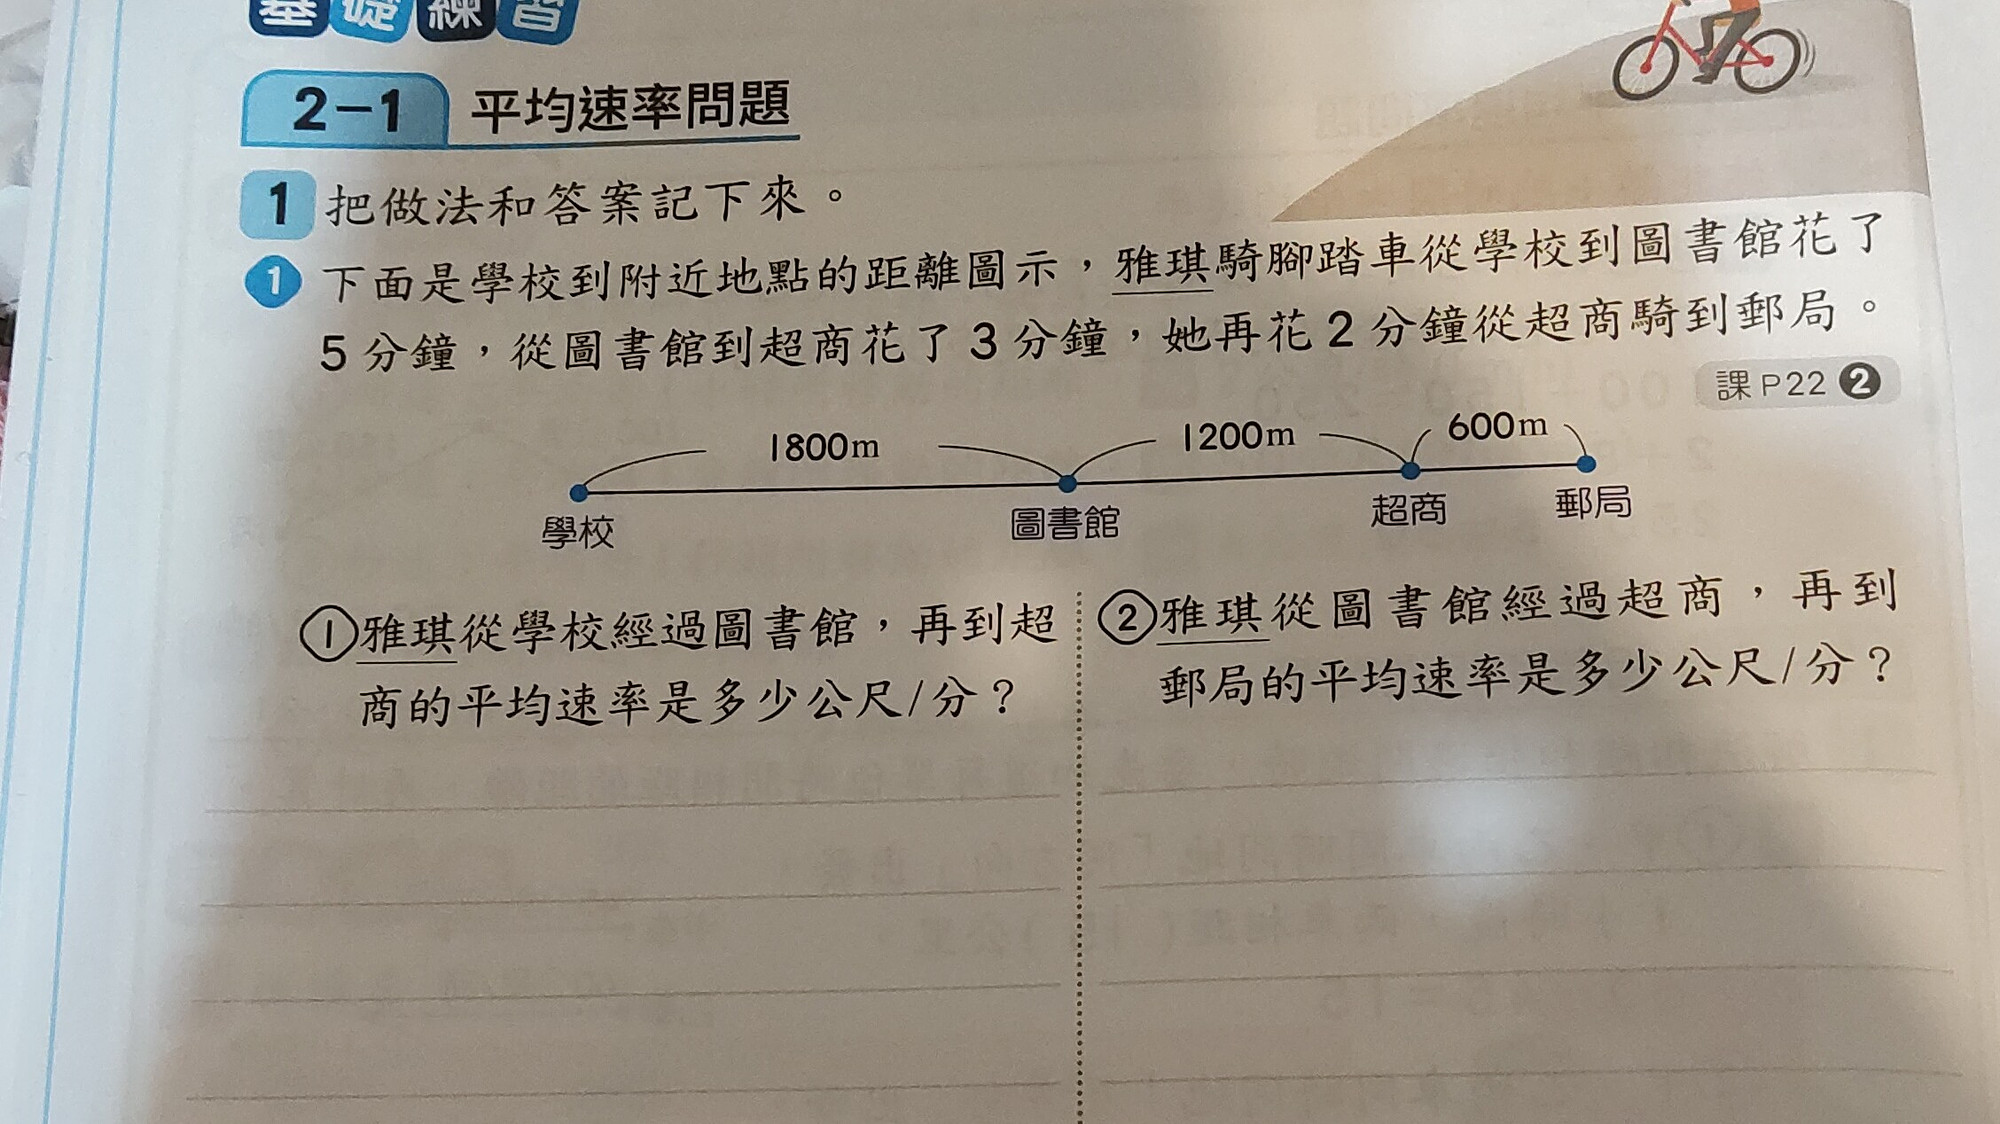 基礎練習
2-1 平均速率問題
1 把做法和答案記下來。
1 下面是學校到附近地點的距離圖示，雅琪騎腳踏車從學校到圖書館花了
5分鐘，從圖書館到超商花了3分鐘，她再花2分鐘從超商騎到郵局。
課P22 2
1800m 1200m 600m
學校 圖書館 超商 郵局
①雅琪從學校經過圖書館，再到超
商的平均速率是多少公尺/分？
②雅琪從圖書館經過超商，再到
郵局的平均速率是多少公尺/分？